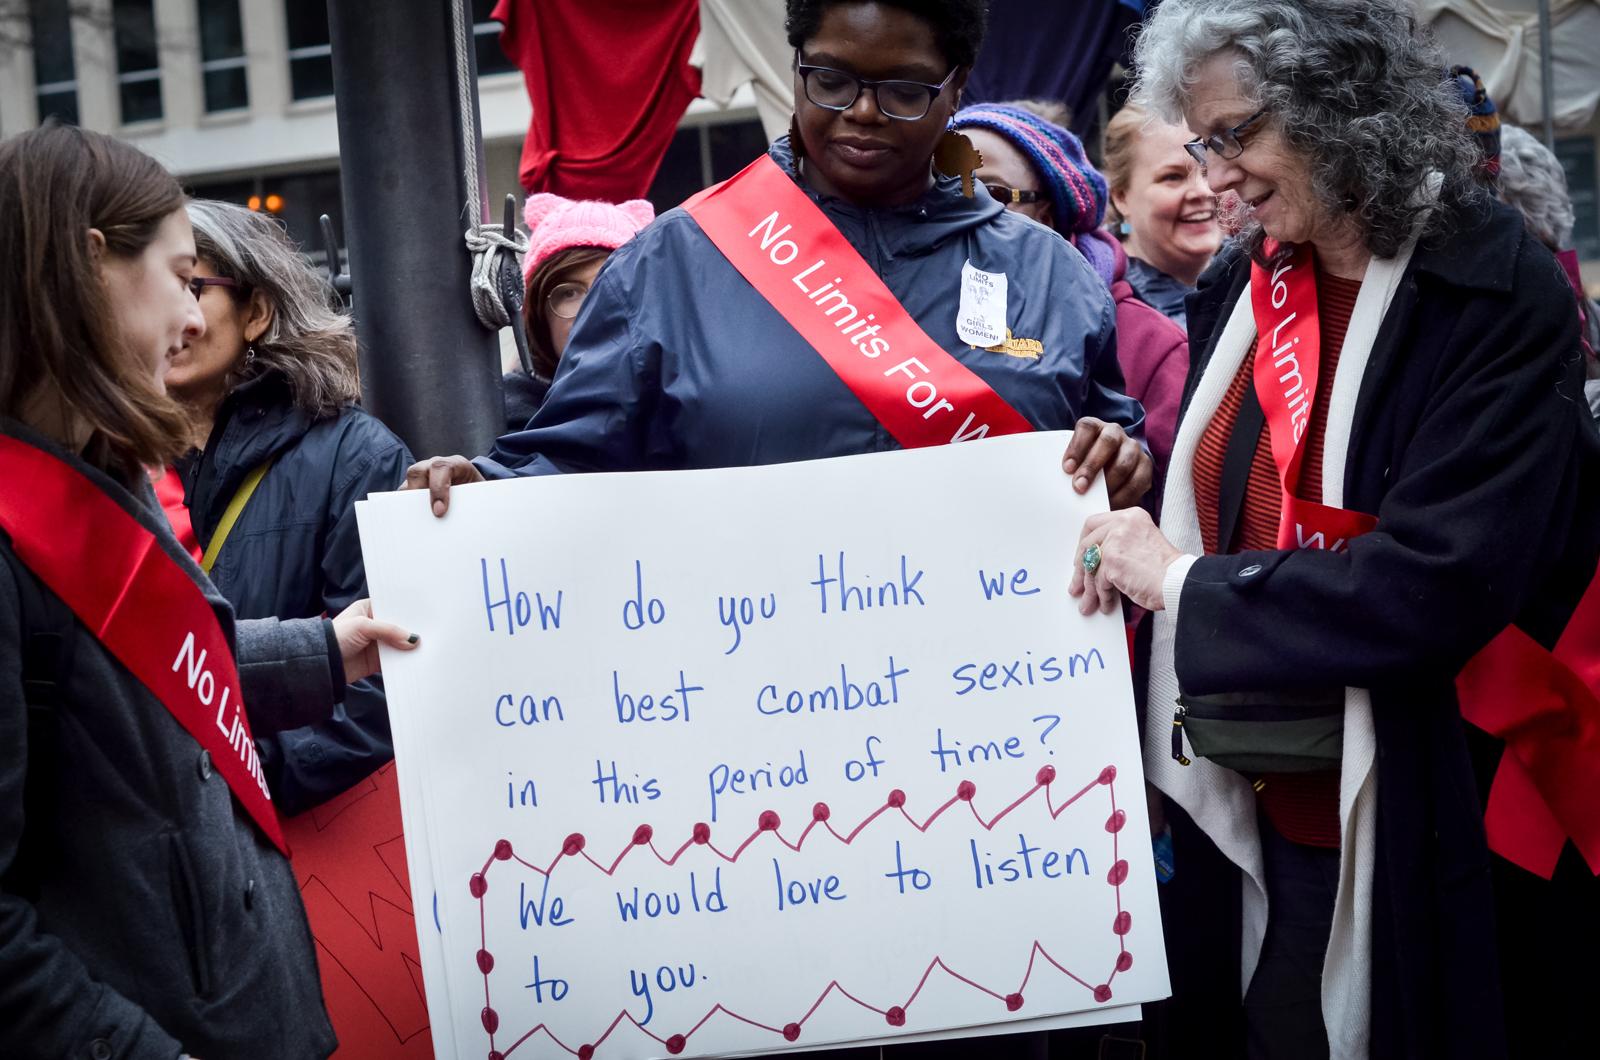 No Limits For W
NO
LIMITS
GIRLS
WOMEN!
No Limits
W
No Limits
How do you think we
can best combat sexism
in this period of time?
We would love to listen
to you.